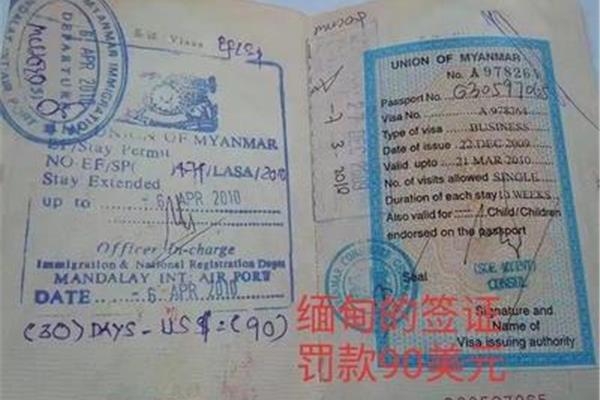 MYANMAR IMMIGRATION
6 APR 2010
DEPARTURE
MANDALAY INT'L AIR PORT
Visas
UNION OF MYANMAR
EF/Stay Permit
NO-EF/SP( /LASA/2010
Stay Extended
up to - 6 APR 2010
Officer In-charge
Immigration & National Registration Dept:
MANDALAY INT: AIR PORT
DATE - 6 APR 2010
(30) DAYS - US $ = (90)
UNION OF MYANMAR
No. A 978264
Passport No. G30597065
Visa No. A 978264
Type of visa BUSINESS
Date of issue 22 DEC 2009
Valid upto 21 MAR 2010
No. of visits allowed SINGLE
Duration of each stay 10 WEEKS
Also valid for Child/Children
endorsed on the passport
Seal
CONSUL
Signature and
Name of
Visa issuing authority
缅甸的签证
罚款90美元